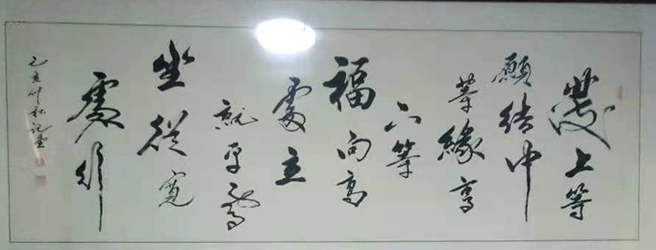 發上等
願結中
等緣享
下等
福向高
處立
就平處
坐從寬
處行
己亥仲秋